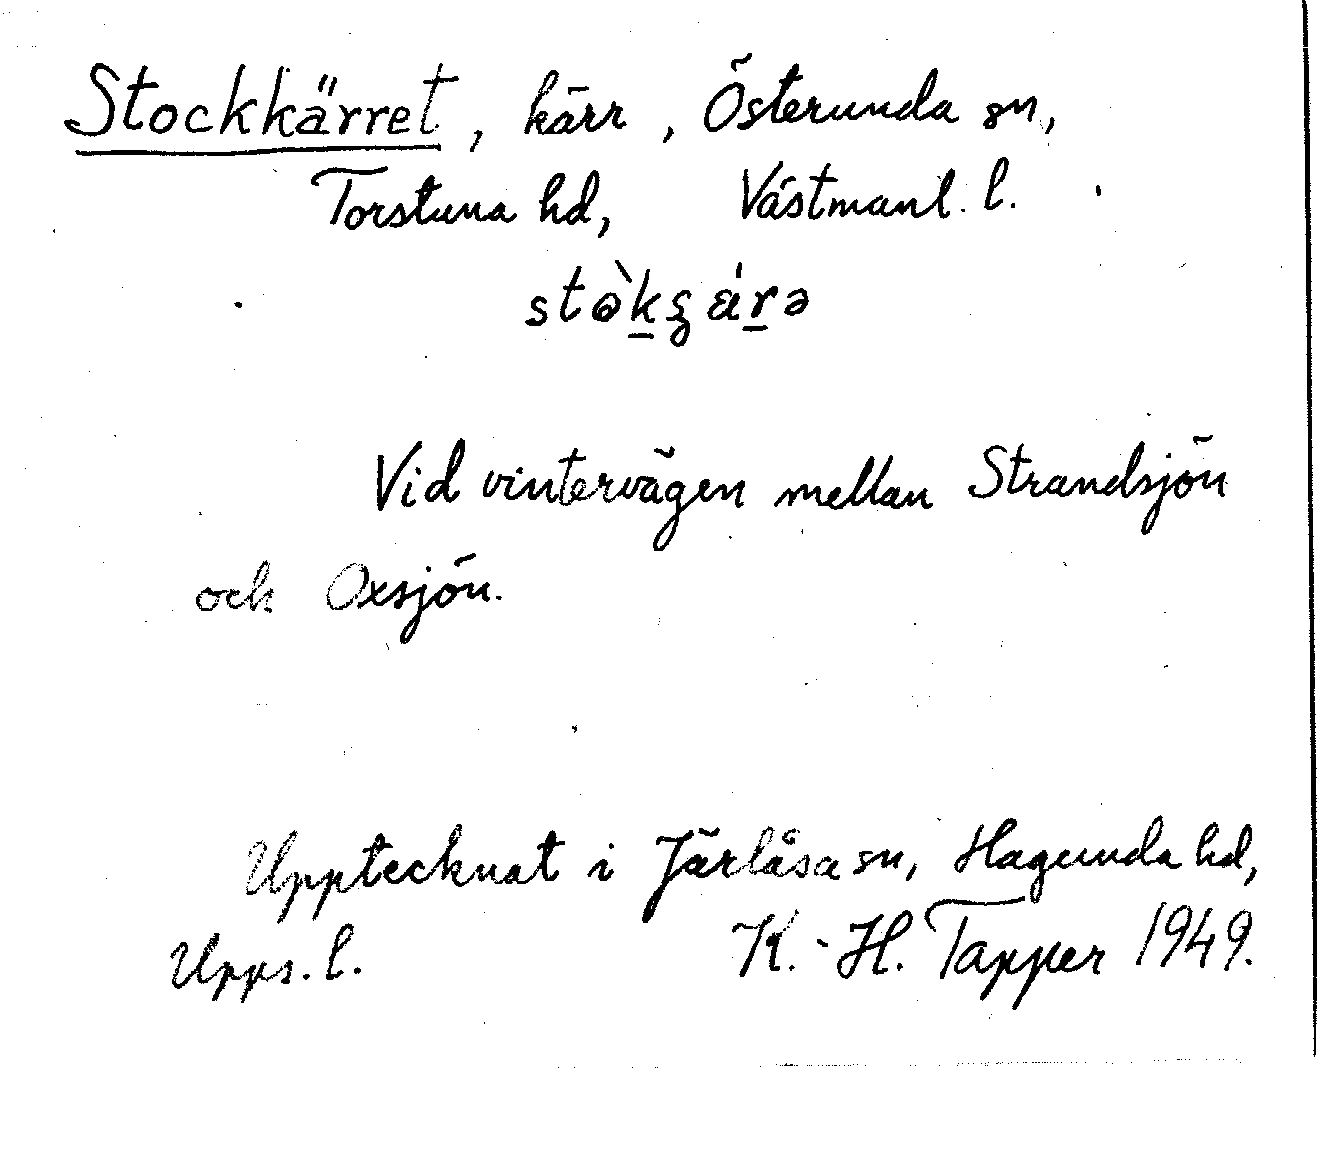 Stockkärret, kärr, Österunda sn,
Torstuna hd, Västmanl. l.
Vid vintervägen mellan Strandsjön
och Oxsjön.
Upptecknat i Järlåsa sn, Hagunda hd,
Upps. l. K.-H. Tapper 1949.